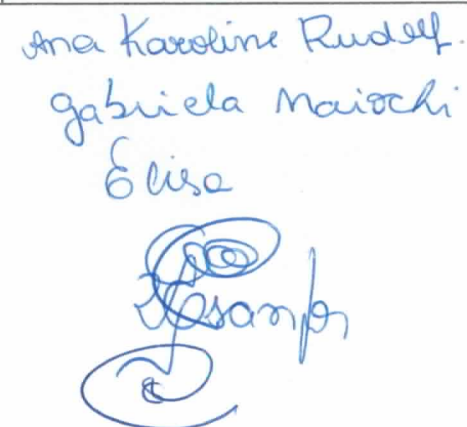 Ana Karoline Rudolf.
Gabriela Maiochi
Elisa